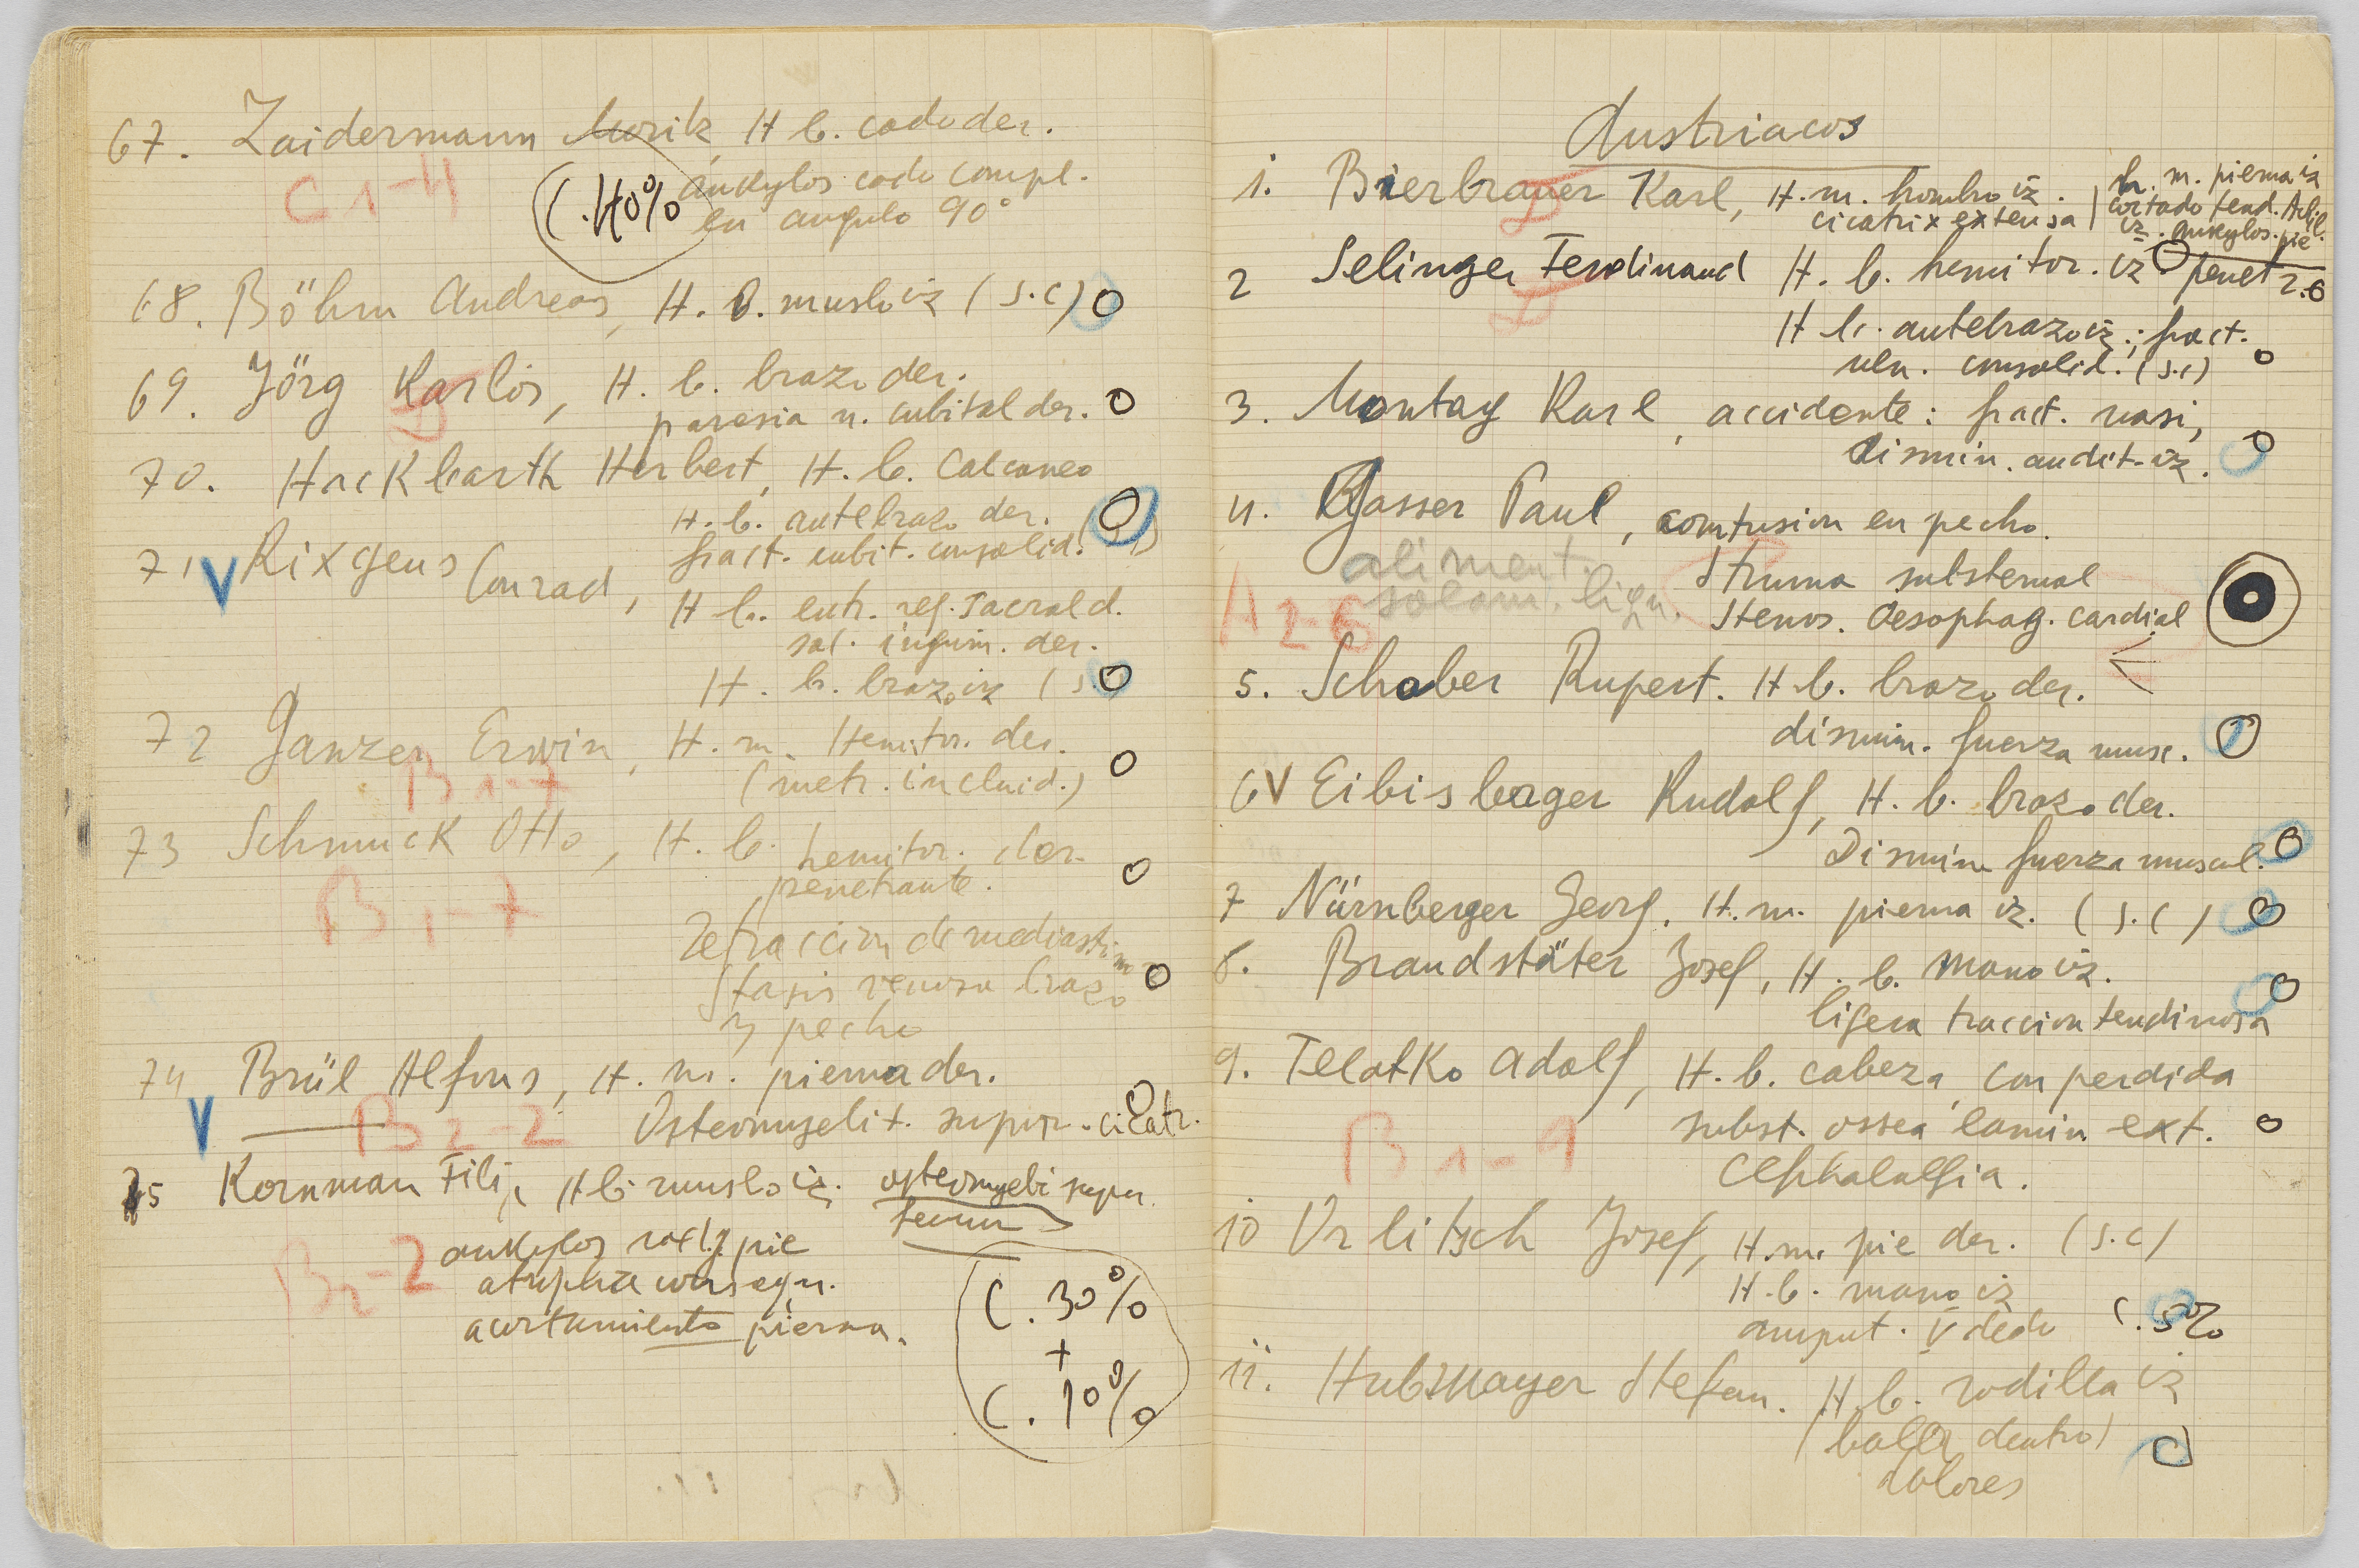 67. Zaidermann Morik, H b. codo der.
C 1-4
C. 40% ankylos codo compl.
en angulo 90°
68. Böhm Andreas, H. b. muslo iz (s.c) O
69. Jörg Karlos, H. b. brazo der.
D
paresia n. cubital der. O
70. Hackbarth Herbert, H. b. Calcaneo
H. b. antebrazo der.
fract. cubit. consolid. O
71 V Rixgens Conrad,
H b. entr. reg. sacral d.
sal. inguin. der.
H. b. brazo iz (s.c) O
72 Ganzer Erwin, H. m. Hemitor. der.
B 1-7
(metr. incluid.) O
73 Schmuck Otto, H. b. hemitor. der.
penetrante. O
B 1-7
Retraccion de mediastin
Stasis venosa brazo O
y pecho
74 Brül Alfons, H. m. pierna der.
V
B 2-2
Osteomyelit. supur. cicatr.
75 Kornman Filip, H b muslo iz. osteomyeli supur.
femur
B2-2
ankylos pie
atrophia consequ.
acortamiento pierna.
C. 30%
+
C. 10%
Austriacos
1. Bierbrauer Karl, H. m. hombro iz.
cicatrix extensa
h. m. pierna iz
cortado tend. Achil.
iz. ankylos. pie
D
2 Selinger Ferdinand H. b. hemitor. iz penetr. O
D
H b. antebrazo iz.; fract.
uln. consolid. (s.c) O
3. Montag Karl, accidente: fract. nasi, O
dismin. audit. iz.
4. Gasser Paul, contusion en pecho.
aliment.
solam. liqu.
A 2-6
Struma substernal
Stenos. Oesophag. cardial
5. Schober Rupert. H b. brazo der. <
dismin. fuerza musc. O
6 V Eibisberger Rudolf, H. b. brazo der.
Dismin fuerza muscul. O
7 Nürnberger Georg, H. m. pierna iz. (s.c) O
8. Brandstäter Josef, H. b. mano iz. O
ligera traccion tendinosa
9. Telatko Adolf, H. b. cabeza, con perdida
subst. ossea lamin ext. O
B 1-9
Cephalalgia.
10 Urlitsch Josef, H. m. pie der. (s.c)
H. b. mano iz
amput. V dedo C. 5%
11. Hubmayer Stefan. H. b. rodilla iz
(balla dentro) O
dolores